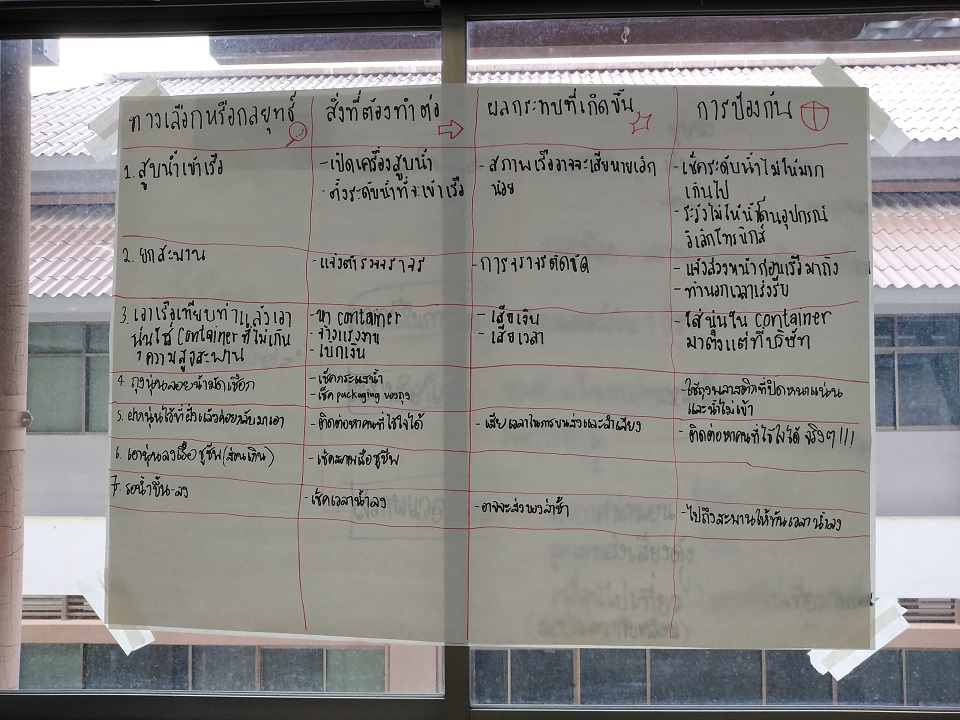 ทางเลือกหรือกลยุทธ์
สิ่งที่ต้องทำต่อ
ผลกระทบที่เกิดขึ้น
การป้องกัน
1. สูบน้ำเข้าเรือ
- เปิดเครื่องสูบน้ำ
- ตั้งระดับน้ำที่จะเข้าเรือ
- สภาพเรืออาจจะเสียหายเล็ก
น้อย
- เช็คระดับน้ำไม่ให้มาก
เกินไป
- ระวังไม่ให้น้ำโดนอุปกรณ์
อิเล็กโทรนิกส์
2. ยกสะพาน
- แจ้งตำรวจจราจร
- การจราจรติดขัด
- แจ้งล่วงหน้าก่อนเรือมาถึง
- ทำนอกเวลาเร่งรีบ
3. เอาเรือเทียบท่าแล้วเอา
นุ่นใช้ Container ที่ไม่เกิน
ความสูงสะพาน
- หา container
- จ้างแรงงาน
- เบิกเงิน
- เสียเงิน
- เสียเวลา
- ใส่นุ่นใน container
มาตั้งแต่ที่บริษัท
4. ถุงนุ่นลอยน้ำมัดเชือก
- เช็คกระแสน้ำ
- เช็ค packaging ของถุง
- ใช้ถุงพลาสติกที่ปิดหนาแน่น
และน้ำไม่เข้า
5. ฝากนุ่นไว้ที่ฝั่งแล้วค่อยกลับมาเอา
- ติดต่อหาคนที่ไว้ใจได้
- เสียเวลาในการขนส่งและลำเลียง
- ติดต่อหาคนที่ไว้ใจได้ จริงๆ!!!
6. เอานุ่นลงเรือชูชีพ (ส่วนเกิน)
- เช็คสภาพเรือชูชีพ
7. รอน้ำขึ้น-ลง
- เช็คเวลาน้ำลง
- อาจจะส่งของล่าช้า
- ไปถึงสะพานให้ทันเวลาน้ำลง